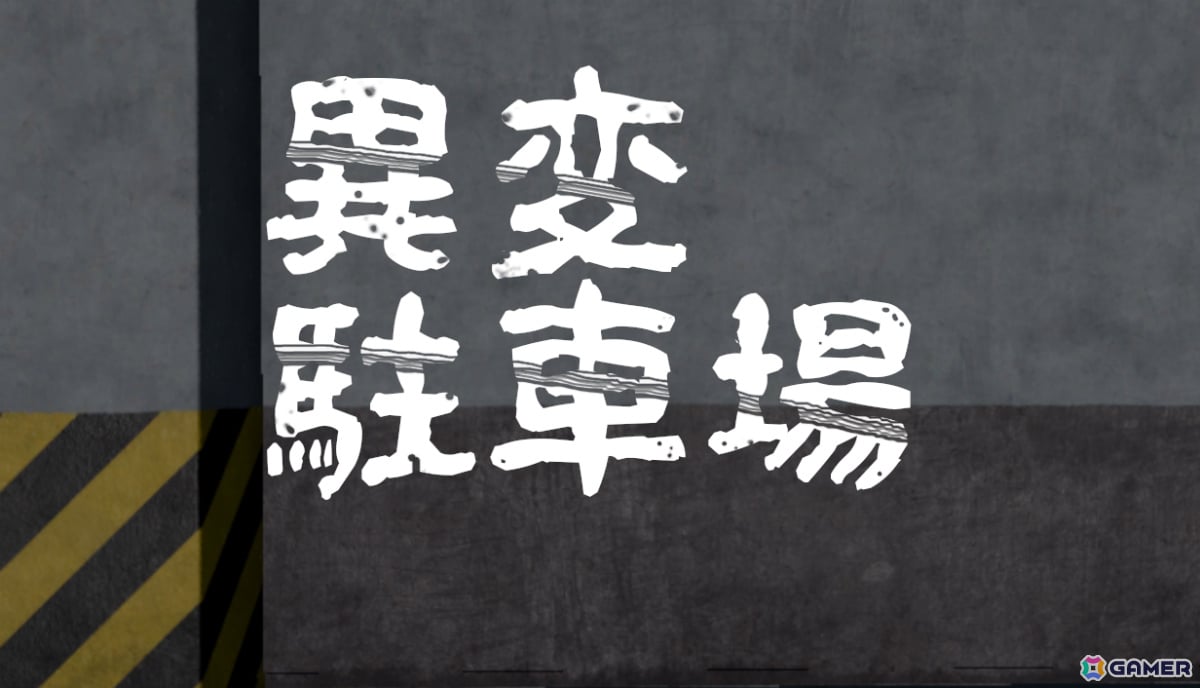 異変
駐車場
GAMER